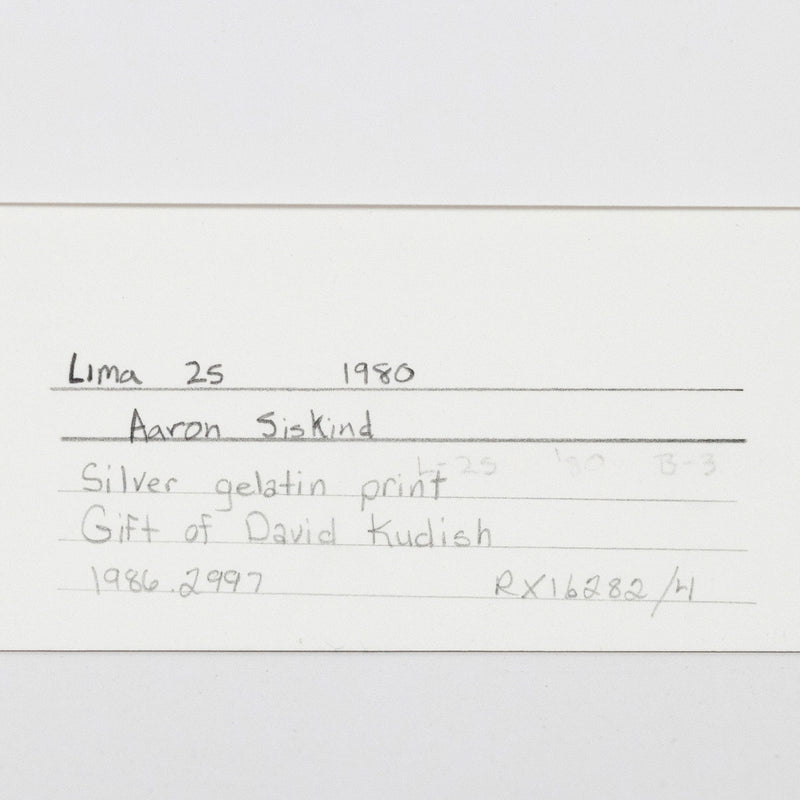 Lima 25 1980
Aaron Siskind
L-25 '80 B-3
Silver gelatin print
Gift of David Kudish
1986.2997 RX16282/4